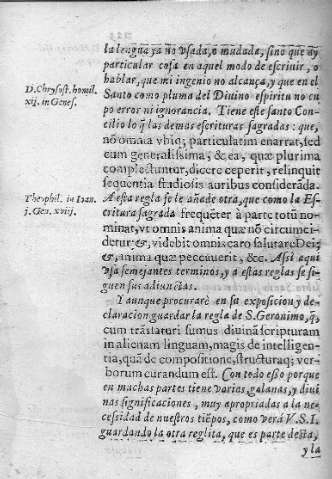 la lengua ya no vsada, o mudada, sino que ay
particular cosa en aquel modo de escriuir, o
hablar, que mi ingenio no alcança, y que en el
Santo como pluma del Diuino espiritu no cu
po error ni ignorancia. Tiene este santo Con-
cilio lo q̃ las demas escrituras sagradas: que,
nõ omnia vbiq; particulatim enarrat, sed
cum generalissima, & ea, quæ plurima
complectuntur, dicere ceperit, relinquit
sequentia studiosis auribus considerãda.
A esta regla se le añade otra, que como la Es-
critura sagrada frequẽter à parte totũ no-
minat, vt omnis anima quæ nõ circumci-
detur, &, videbit omnis caro salutare Dei;
&, anima quæ peccauerit, &c. Assi aqui
vsa semejantes terminos, y a estas reglas se si-
guen sus adiunctas.
Y aunque procurarè en su exposicion y de-
claracion guardar la regla de S. Geronimo, q̃,
cum trãslatori sumus diuinã scripturam
in alienam linguam, magis de intelligen-
tia, quã de compositione, structuraq; ver-
borum curandum est. Con todo esso porque
en muchas partes tiene varias, galanas, y diui
nas significaciones, muy apropriadas a la ne-
cessidad de nuestros tiẽpos, como verà V.S.I.
guardando la otra reglita, que es parte desta,
y la
D. Chrysost. homil.
xij. in Genes.
Theophil. in Ioan.
j. Gen. xviij.